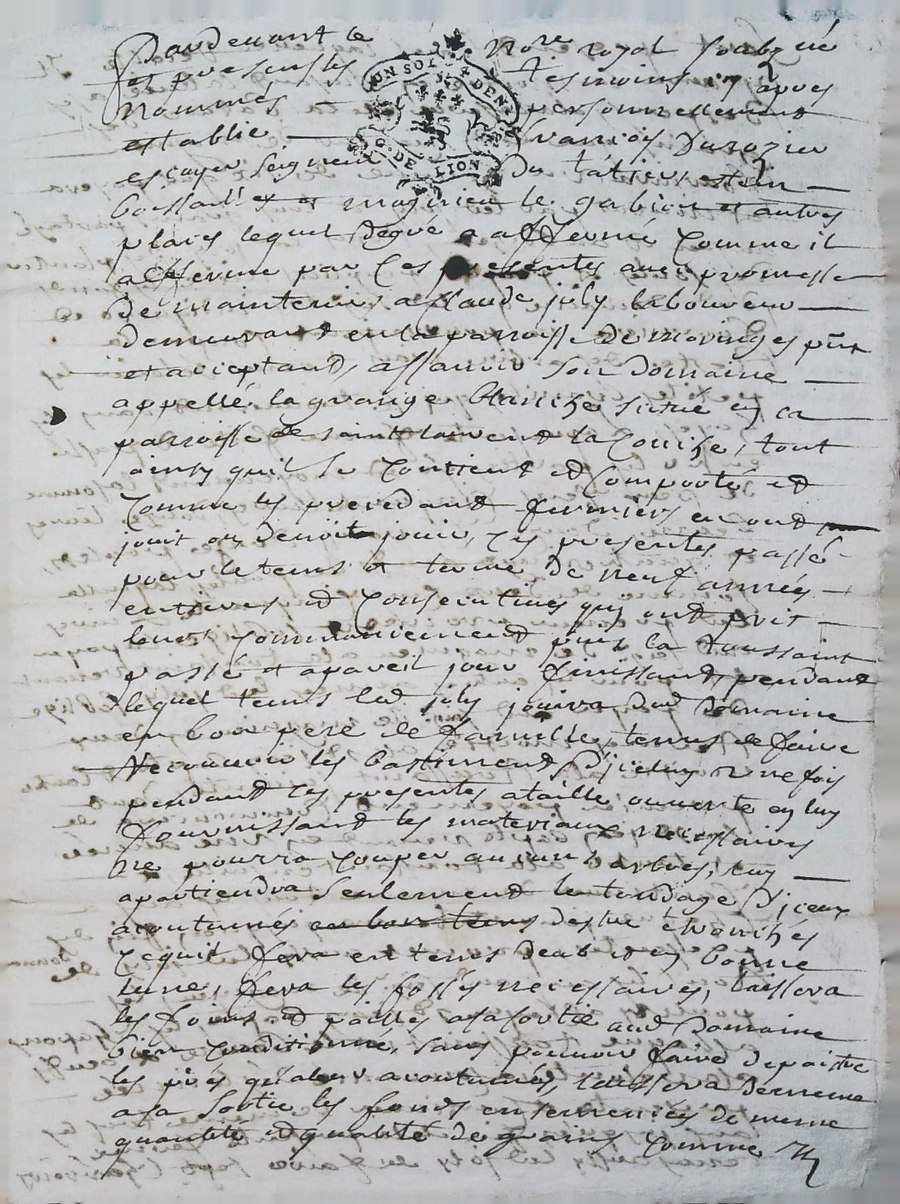 Pardevant le no.re royal soubzné
et presents tesmoins cy apres
nommés UN SOL 4 DEN. personnellement
establie G. DE LION françois Durozier
escuyer seigneur du
magnieu le gabion et autres
places lequel degré a affermé comme il
afferme par ces presentes avec promesse
de maintenir, a Claude joly laboureur
demeurant en la parroisse de moringes pnt
et aceptand, assavoir son domaine
appellé la grange blanche situé en ca
parroisse de saint laurent la Conche, tout
ainsy quil se contient et comporte et
comme les precedant fermiers en ont
jouit ou deuoit jouir, ces presentes passé
pour le tems et terme de neuf années
entieres et consecutives quy ont prit
leurs commancement puis la toussaint
passé et a pareil jour finissand, pendant
lequel tems led joly jouira dud domaine
en bon pere de famille, tenus de faire
recouvrir les bastiments d'jceluy une fois
pendant ces presentes a taille ouverte en luy
fournissand les materiaux necessaires
ne pourra couper aucuns arbres, luy
apartiendra seulement le tondage d'jceux
acoutumés en bon tems destre ebranchés
cequil fera en tems deub et en bonne
lune, fera les fossés necessaires, laissera
les foins et pailles a sa sortie aud domaine
bien conditionné, sans pouvoir faire depaistre
les prés qu'aler acoutumés laissera de meme
a sa sortie les fonds ensemencés de meme
quantité et qualité de grains comme Il